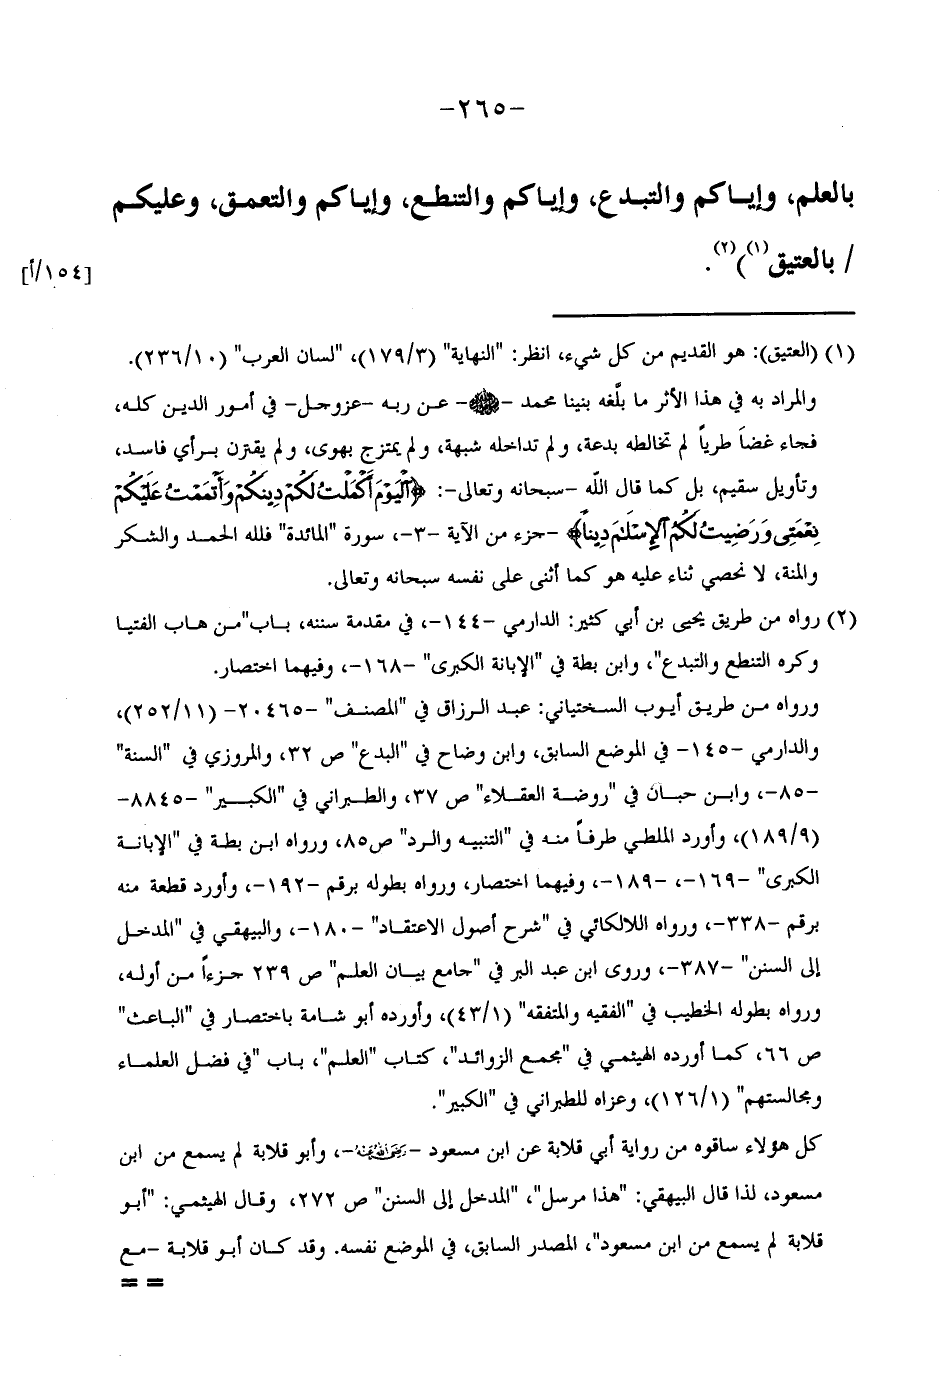 -٢٦٥-
بالعلم، وإياكم والتبدع، وإياكم والتنطع، وإياكم والتعمق، وعليكم
/ بالعتيق(١))(٢).
[١٥٤/أ]
(١) (العتيق): هو القديم من كل شيء، انظر: "النهاية" (١٧٩/٣)، "لسان العرب" (٢٣٦/١٠).
والمراد به في هذا الأثر ما بلَّغه بنينا محمد -ﷺ- عن ربه -عزوجل- في أمور الدين كله،
فجاء غضاً طرياً لم تخالطه بدعة، ولم تداخله شبهة، ولم يمتزج بهوى، ولم يقترن برأي فاسد،
وتأويل سقيم، بل كما قال اللّه -سبحانه وتعالى-: ﴿ٱلْيَوْمَ أَكْمَلْتُ لَكُمْ دِينَكُمْ وَأَتْمَمْتُ عَلَيْكُمْ
نِعْمَتِى وَرَضِيتُ لَكُمُ ٱلْإِسْلَٰمَ دِيناً﴾ -جزء من الآية -٣-، سورة "المائدة" فلله الحمد والشكر
والمنة، لا نحصي ثناء عليه هو كما أثنى على نفسه سبحانه وتعالى.
(٢) رواه من طريق يحيى بن أبي كثير: الدارمي -١٤٤-، في مقدمة سننه، باب"من هاب الفتيا
وكره التنطع والتبدع"، وابن بطة في "الإبانة الكبرى" -١٦٨-، وفيهما اختصار.
ورواه من طريق أيوب السختياني: عبد الرزاق في "المصنف" -٢٠٤٦٥- (٢٥٢/١١)،
والدارمي -١٤٥- في الموضع السابق، وابن وضاح في "البدع" ص ٣٢، والمروزي في "السنة"
-٨٥-، وابن حبان في "روضة العقلاء" ص ٣٧، والطبراني في "الكبير" -٨٨٤٥-
(١٨٩/٩)، وأورد الملطي طرفاً منه في "التنبيه والرد" ص٨٥، ورواه ابن بطة في "الإبانة
الكبرى" -١٦٩-، -١٨٩-، وفيهما اختصار، ورواه بطوله برقم -١٩٢-، وأورد قطعة منه
برقم -٣٣٨-، ورواه اللالكائي في "شرح أصول الاعتقاد" -١٨٠-، والبيهقي في "المدخل
إلى السنن" -٣٨٧-، وروى ابن عبد البر في "جامع بيان العلم" ص ٢٣٩ جزءاً من أوله،
ورواه بطوله الخطيب في "الفقيه والمتفقه" (٤٣/١)، وأورده أبو شامة باختصار في "الباعث"
ص ٦٦، كما أورده الهيثمي في "مجمع الزوائد"، كتاب "العلم"، باب "في فضل العلماء
ومجالستهم" (١٢٦/١)، وعزاه للطبراني في "الكبير".
كل هؤلاء ساقوه من رواية أبي قلابة عن ابن مسعود -رَضِيَ اللَّهُ عَنْهُ-، وأبو قلابة لم يسمع من ابن
مسعود، لذا قال البيهقي: "هذا مرسل"، "المدخل إلى السنن" ص ٢٧٢، وقال الهيثمي: "أبو
قلابة لم يسمع من ابن مسعود"، المصدر السابق، في الموضع نفسه. وقد كان أبو قلابة -مع
= =